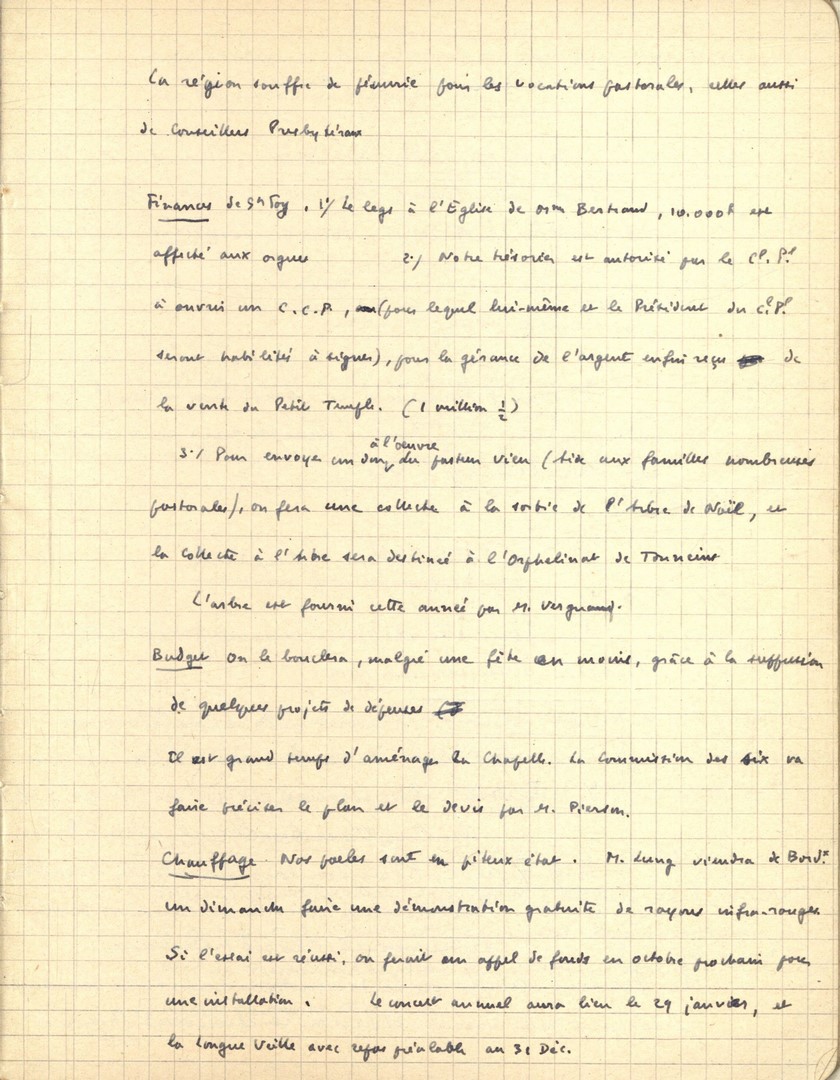 La région souffre de pénurie pour les vocations pastorales, celles aussi
de Conseillers Presbytéraux
Finances de Ste Foy. 1°/ Le legs à l'Eglise de Bertrand, 10.000f est
affecté aux orgues 2°/ Notre trésorier est autorisé par le Cl. Pl.
à ouvrir un C.C.P., (pour lequel lui-même et le Président du Cl. Pl.
seront habilités à signer), pour la gérance de l'argent enfin reçu de
la vente du Petit Temple. (1 million ½)
à l'oeuvre
3°/ Pour envoyer un don du pasteur Vien (aux familles nombreuses
pastorales), on fera une collecte à la sortie de l'Arbre de Noël, et
la collecte à l'Arbre sera destinée à l'Orphelinat de Tonneins
L'arbre est fourni cette année par M. Vergnaud.
Budget On le bouclera, malgré une fête en moins, grâce à la suppression
de quelques projets de dépenses
Il est grand temps d'aménager la Chapelle. La Commission des six va
faire préciser le plan et le devis par M. Pierson.
Chauffage Nos poeles sont en piteux état. M. Lung viendra de Bordx
un dimanche faire une démonstration gratuite de rayons infra-rouges.
Si l'essai est réussi, on ferait un appel de fonds en octobre prochain pour
une installation. Le concert annuel aura lieu le 29 janvier, et
la Longue Veille avec repas préalable au 31 Déc.